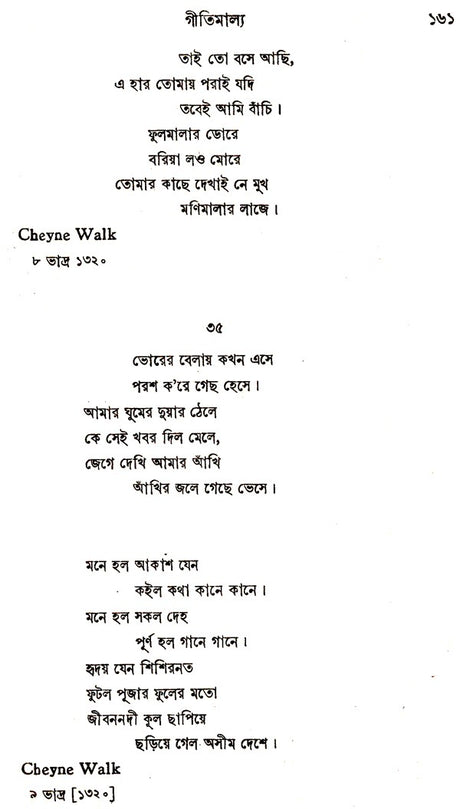 গীতিমাল্য ১৬১
তাই তো বসে আছি,
এ হার তোমায় পরাই যদি
তবেই আমি বাঁচি।
ফুলমালার ডোরে
বরিয়া লও মোরে
তোমার কাছে দেখাই নে মুখ
মণিমালার লাজে।
Cheyne Walk
৮ ভাদ্র ১৩২০
৩৫
ভোরের বেলায় কখন এসে
পরশ ক'রে গেছ হেসে।
আমার ঘুমের দুয়ার ঠেলে
কে সেই খবর দিল মেলে,
জেগে দেখি আমার আঁখি
আঁখির জলে গেছে ভেসে।
মনে হল আকাশ যেন
কইল কথা কানে কানে।
মনে হল সকল দেহ
পূর্ণ হল গানে গানে।
হৃদয় যেন শিশিরনত
ফুটল পূজার ফুলের মতো
জীবননদী কূল ছাপিয়ে
ছড়িয়ে গেল অসীম দেশে।
Cheyne Walk
৯ ভাদ্র [১৩২০]